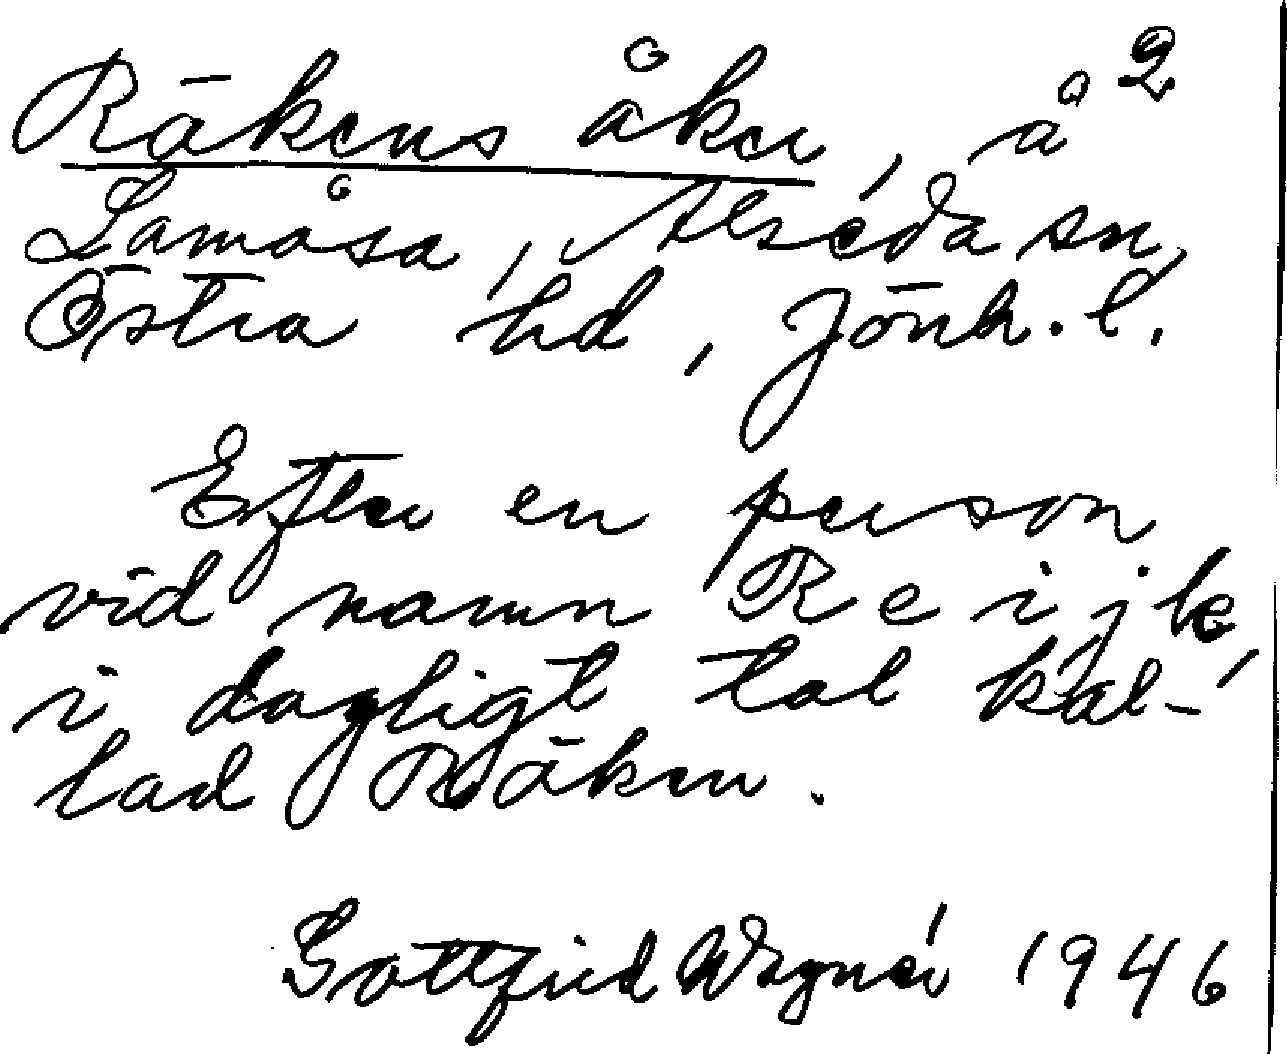 Räkens åker, å 2
Lamåsa, Alseda sn,
Östra hd, Jönk. l.
Efter en person
vid namn Reijke,
i dagligt tal kal-
lad Räken.
Gottfrid Wagnér 1946